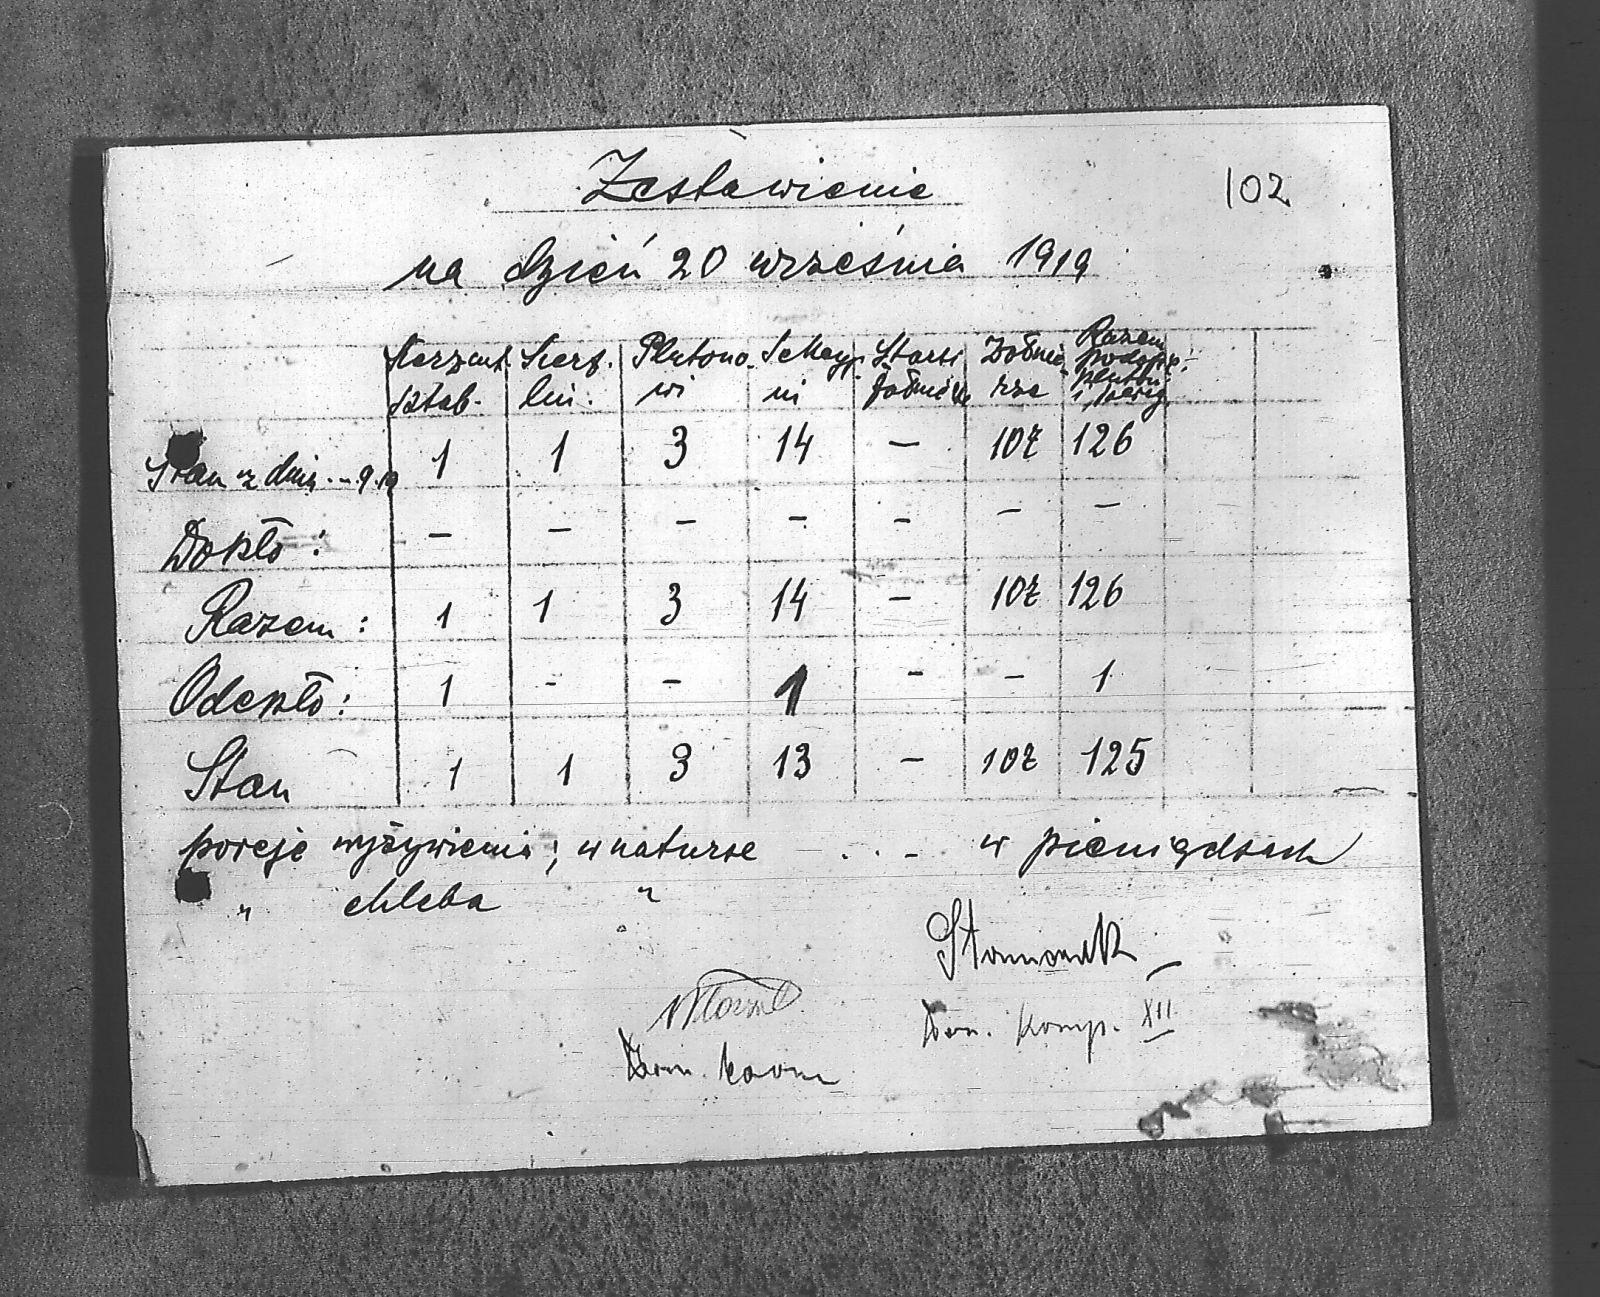 Zestawienie
102
na dzień 20 września 1919
Sierżant. Sierż. Plutono- Sekcyj- Starsi Żołnie- Razem
sztab. lin. wi ni żołnierze rze podofic.
plutn.
i sekcyj.
Stan z dnia . - 9.19 1 1 3 14 — 107 126
Doszło: — — — — — — —
Razem: 1 1 3 14 — 107 126
Odeszło: 1 - — 1 - — 1
Stan 1 1 3 13 — 107 125
porcje wyżywienia; w naturze . . - w pieniądzach
" chleba "
Dow. Komp. XII
Dow. baonu